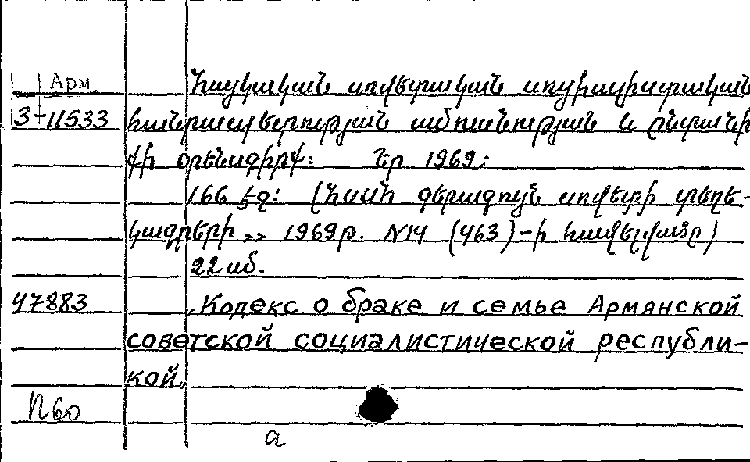 Арм
Հայկական սովետական սոցիալիստական
3-11533 հանրապետության ամուսնության և ընտանի
քի օրենսգիրք: Եր 1969:
166 էջ: (ՀՍՍՀ գերագույն սովետի տեղե-
կագրերի» 1969թ. N14 (463)-ի հավելվածը)
22սմ.
47883 Кодекс о браке и семье Армянской
советской социалистической республи-
кой.
П60
а